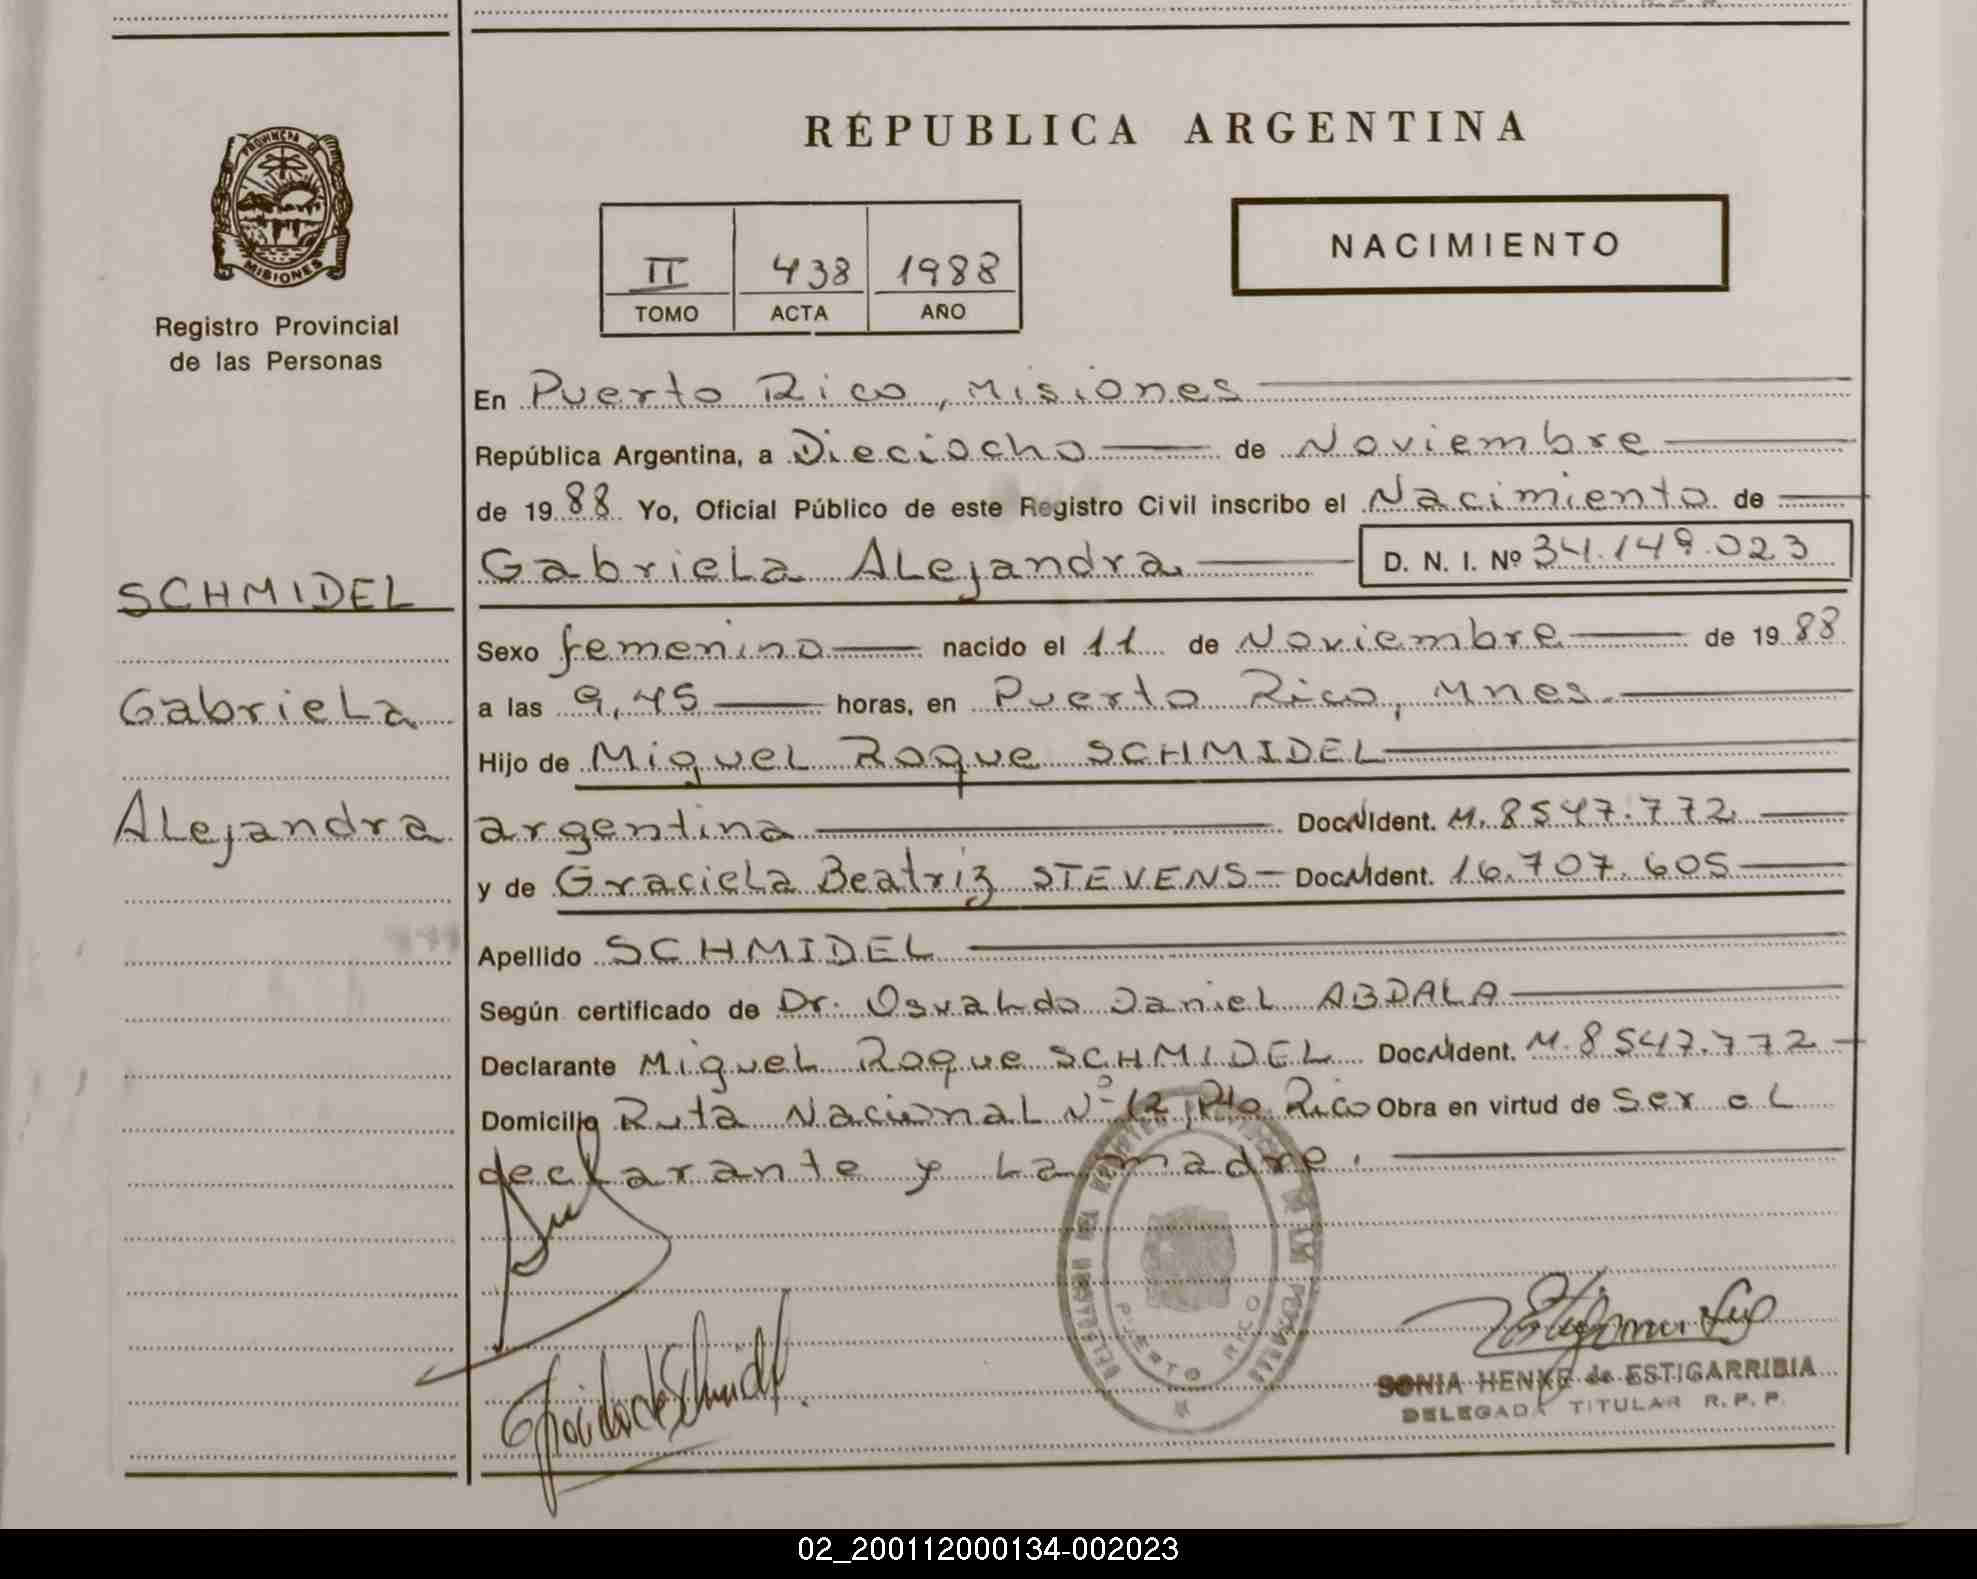 REPUBLICA ARGENTINA
PROVINCIA DE
MISIONES
Registro Provincial
de las Personas
II 438 1988
TOMO ACTA AÑO
NACIMIENTO
En Puerto Rico, Misiones
República Argentina, a Dieciocho de Noviembre
de 1988 Yo, Oficial Público de este Registro Civil inscribo el Nacimiento de
Gabriela Alejandra D. N. I. Nº 34.149.023
SCHMIDEL
Gabriela
Alejandra
Sexo femenino nacido el 11 de Noviembre de 1988
a las 9,45 horas, en Puerto Rico, Mnes.
Hijo de Miguel Roque SCHMIDEL
argentina Doc. Ident. M. 8547.772
y de Graciela Beatriz STEVENS - Doc. Ident. 16.707.605
Apellido SCHMIDEL
Según certificado de Dr. Osvaldo Daniel ABDALA
Declarante Miguel Roque SCHMIDEL Doc. Ident. M. 8547.772
Domicilio Ruta Nacional Nº 12, Pto. Rico Obra en virtud de ser el
declarante y la madre.
PUERTO RICO
SONIA HENKE de ESTIGARRIBIA
DELEGADA TITULAR R. P. P.
02_200112000134-002023